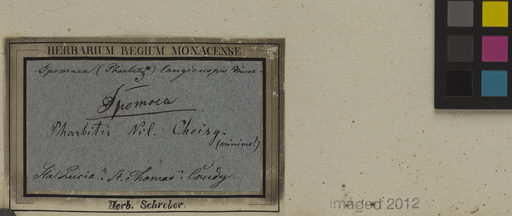 HERBARIUM REGIUM MONACENSE
Ipomaea (Pharbitis)
Ipomoea
Pharbitis Nil. Choisy.
(minime!)
Sta Lucia. St. Thomas.
Herb. Schreber
imaged 2012